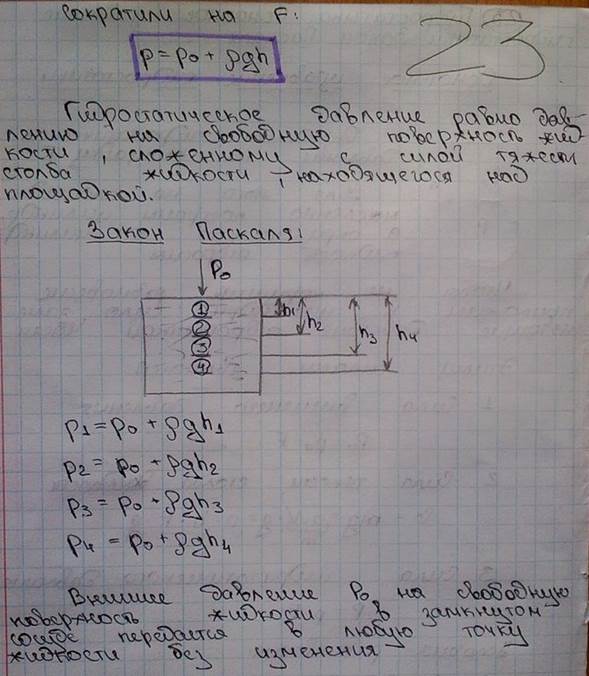 сократили на F:
23
p = p0 + ρgh
Гидростатическое давление равно дав-
лению на свободную поверхность жид
кости, сложенному с силой тяжести
столба жидкости, находящегося над
площадкой.
Закон Паскаля:
P0
1
2
3
4
h1
h2
h3
h4
p1 = p0 + ρgh1
p2 = p0 + ρgh2
p3 = p0 + ρgh3
p4 = p0 + ρgh4
Внешнее давление P0 на свободную
поверхность жидкости в замкнутом
сосуде передается в любую точку
жидкости без изменения